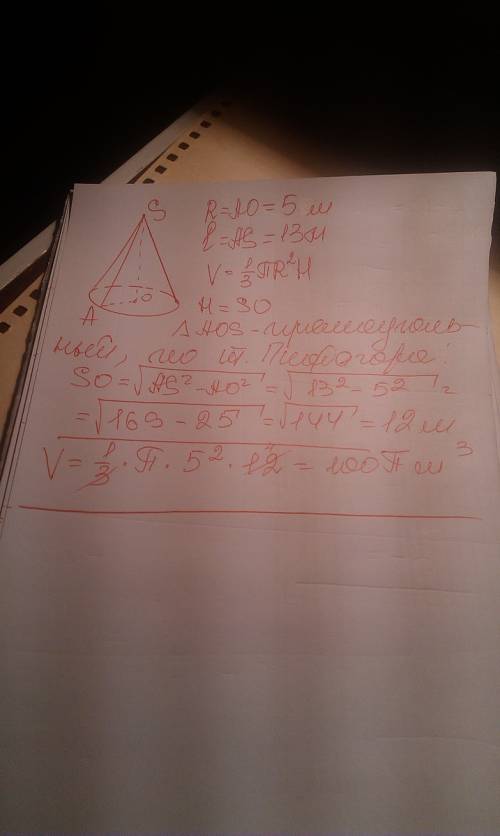 S
A
O
R=AO=5 м
l=AS=13м
V=1/3ПR²H
H=SO
△AOS-прямоуголь-
ный, по т. Пифагора:
SO=√(AS²-AO²)=√(13²-5²)=
=√(169-25)=√144=12м
V=1/3·П·5²·12⁴=100Пм³